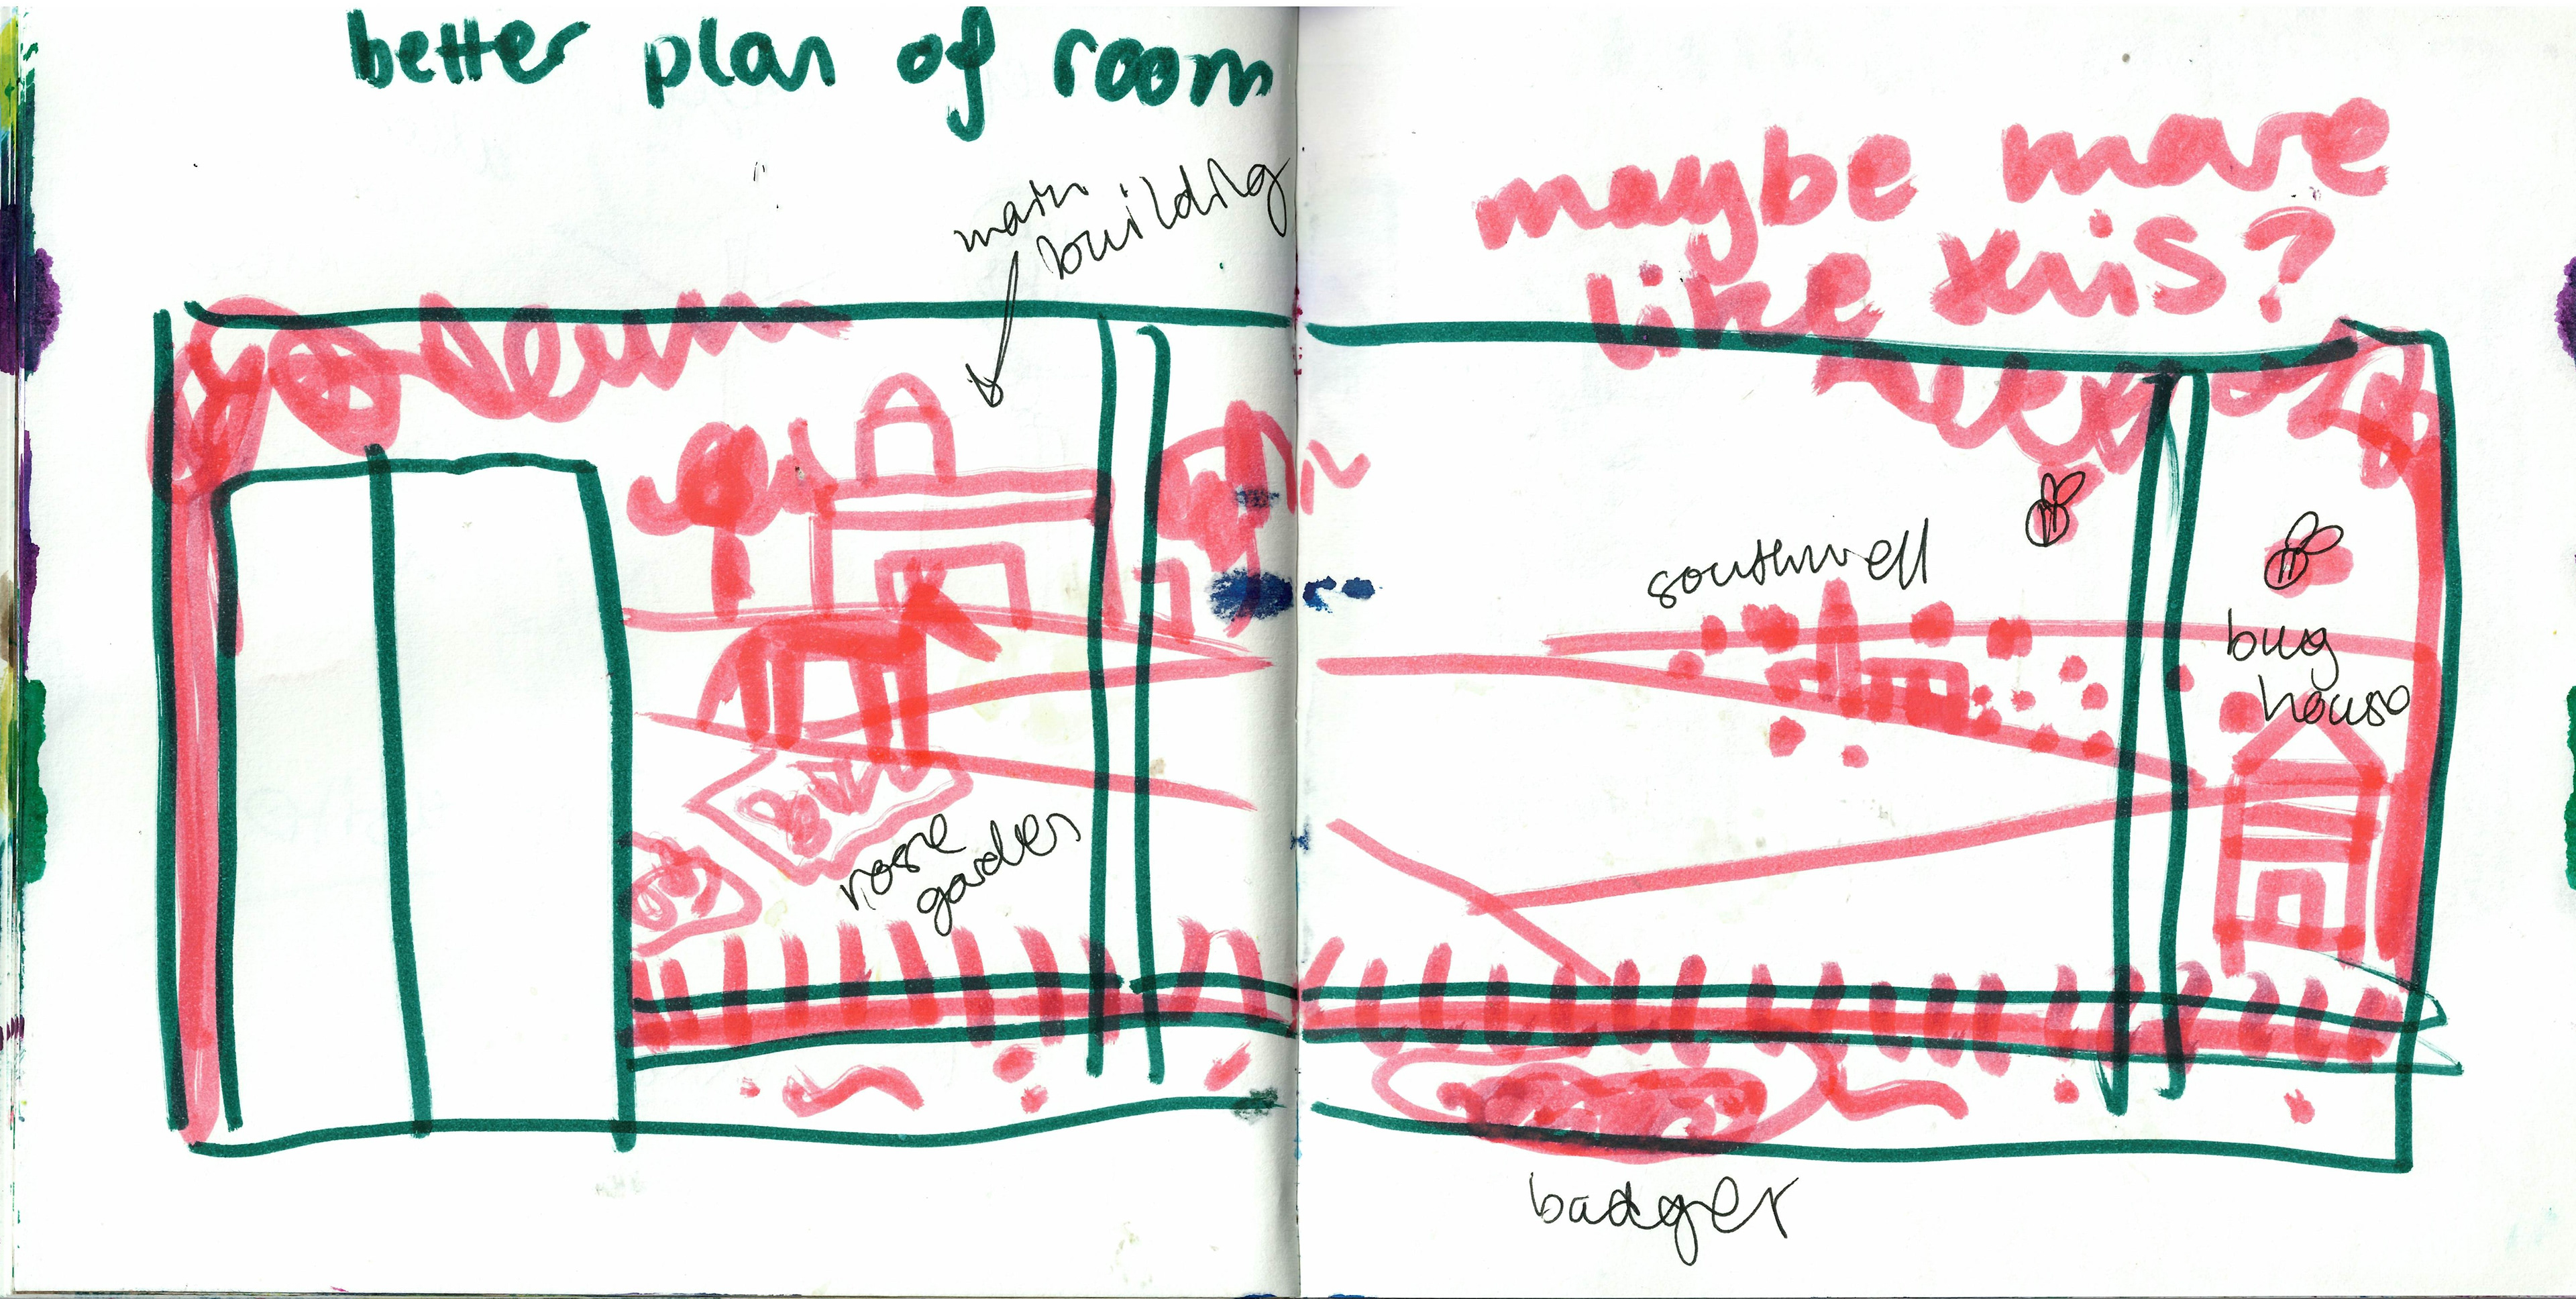 better plan of room
maybe more
like this?
main
building
southwell
bug
house
rose
garden
badger